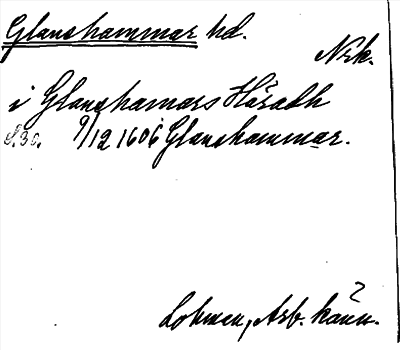 Glanshammar hd.
Nrk.
i Glanshamars Häradh
S. 30. 9/12 1606 Glanshammar.
Lohman, Arb. känn.